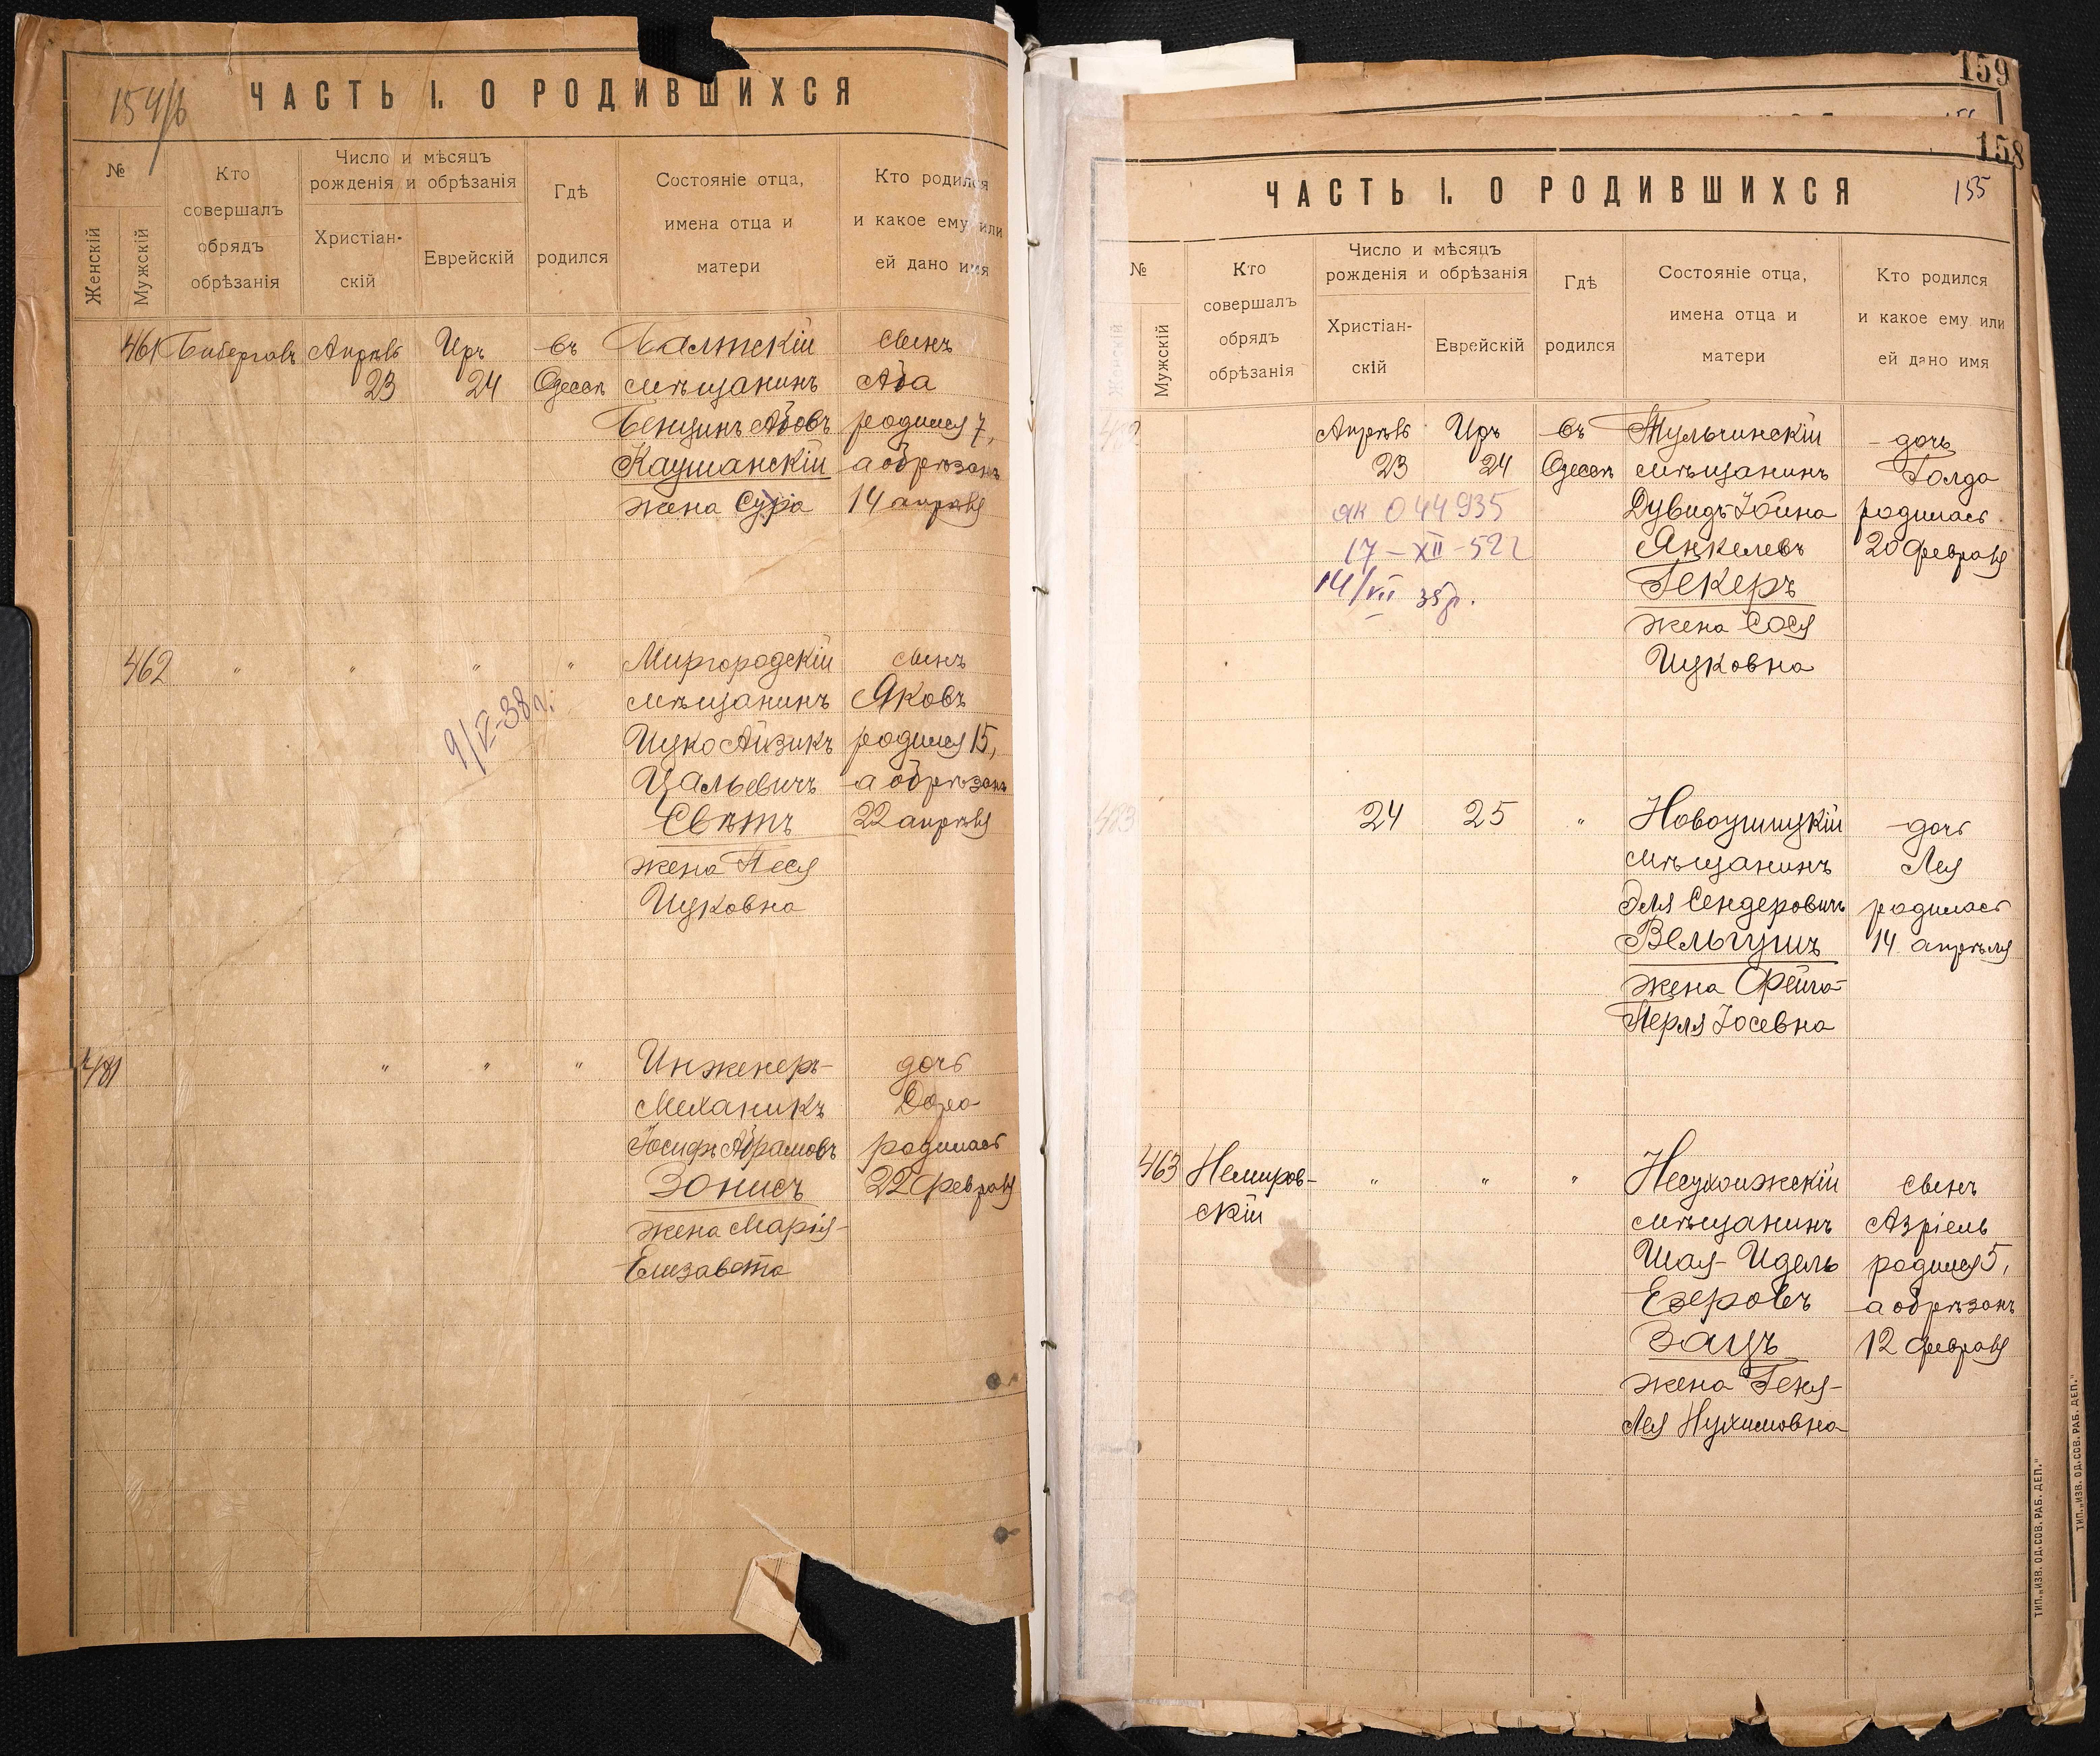 154/б
ЧАСТЬ I. О РОДИВШИХСЯ
№
Женскій
Мужскій
Кто
совершалъ
обрядъ
обрѣзанія
Число и мѣсяцъ
рожденія и обрѣзанія
Христіан-
скій
Еврейскій
Гдѣ
родился
Состояніе отца,
имена отца и
матери
Кто родился
и какое ему или
ей дано имя
461
Апрѣль
23
Иръ
24
въ
Одессѣ
Балтскій
мѣщанинъ
Бенціинъ Абовъ
Каушанскій
жена Сура
сынъ
Аба
родился 7,
а обрѣзанъ
14 апрѣля
462
"
"
"
"
9/V-38 г.
Миргородскій
мѣщанинъ
Ицко Айзикъ
Цальевичъ
Свѣтъ
жена Песя
Ицковна
сынъ
Яковъ
родился 15,
а обрѣзанъ
22 апрѣля
481
"
"
"
Инженеръ-
Механикъ
Іосифъ Абрамовъ
Зонисъ
жена Марія-
Елизавета
дочь
Дора
родилась
22 февраля
159
158
155
ЧАСТЬ I. О РОДИВШИХСЯ
№
Женскій
Мужскій
Кто
совершалъ
обрядъ
обрѣзанія
Число и мѣсяцъ
рожденія и обрѣзанія
Христіан-
скій
Еврейскій
Гдѣ
родился
Состояніе отца,
имена отца и
матери
Кто родился
и какое ему или
ей дано имя
482
Апрѣль
23
Иръ
24
въ
Одессѣ
044935
17-XII-52г
14/VII 35г.
Тульчинскій
мѣщанинъ
Дувидъ Іойна
Янкелевъ
Гекеръ
жена Сося
Ицковна
дочь
Голда
родилась
20 февраля
483
24
25
"
Новоушицкій
мѣщанинъ
Эля Сендеровичъ
Вельгушъ
жена Фейга-
Перля Іосевна
дочь
Лея
родилась
14 апрѣля
463
Немиров-
скій
"
"
"
Несухоижскій
мѣщанинъ
Шая-Идель
Езеровъ
Зацъ
жена Геня-
Лея Нухимовна
сынъ
Азріель
родился 5,
а обрѣзанъ
12 февраля
ТИП. „ИЗВ. ОД. СОВ. РАБ. ДЕП."
ТИП. „ИЗВ. ОД. СОВ. РАБ. ДЕП."